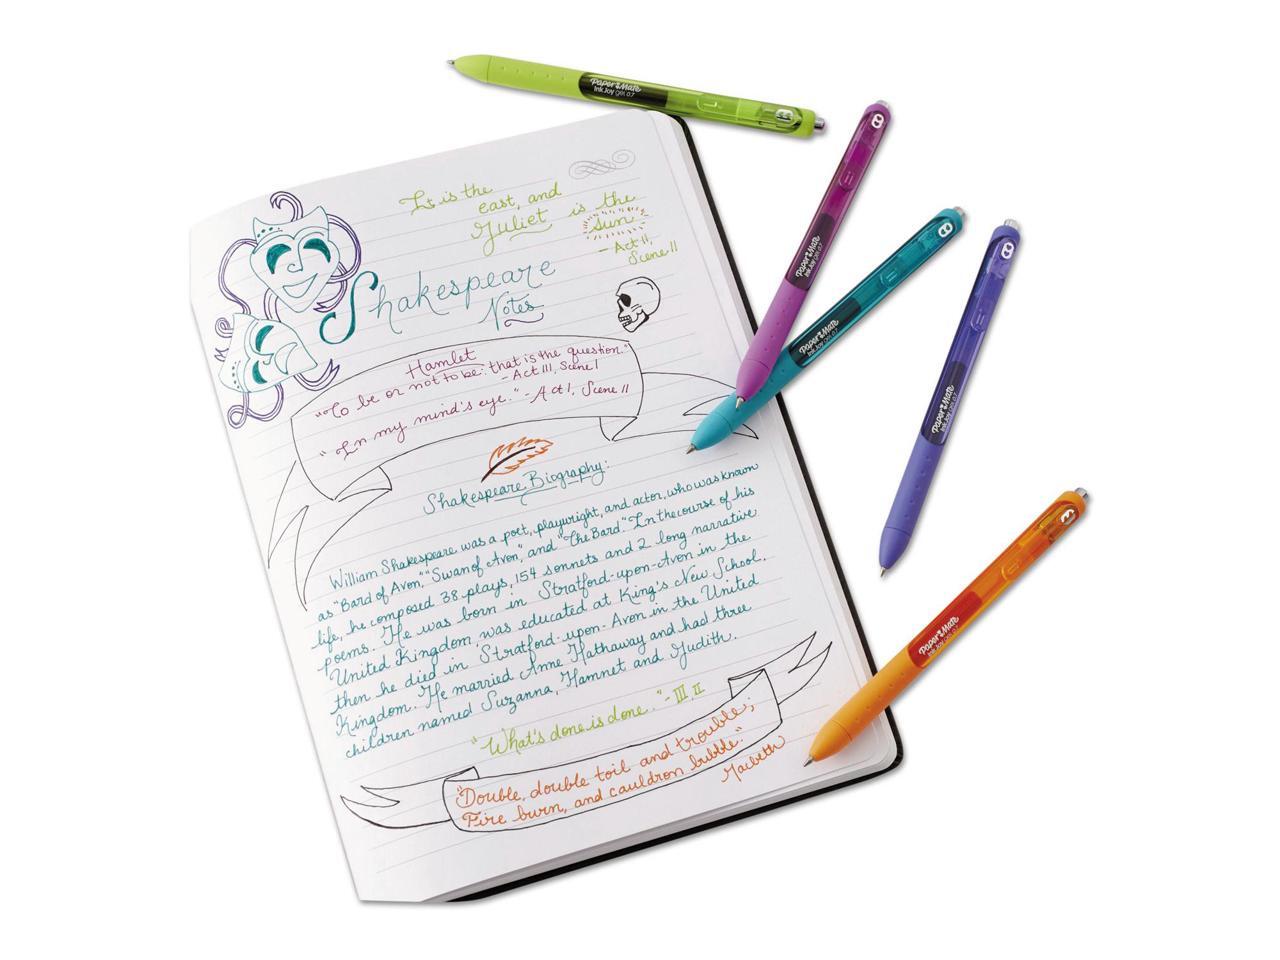 It is the
east, and
Juliet is the
sun
- Act II,
Scene II
Shakespeare
Notes
Hamlet
"To be or not to be: that is the question."
- Act III, Scene I
"In my mind's eye." - Act I, Scene II
Shakespeare Biography:
William Shakespeare was a poet, playwright, and actor, who was known
as "Bard of Avon," "Swan of Avon," and "The Bard". In the course of his
life, he composed 38 plays, 154 sonnets and 2 long narrative
poems. He was born in Stratford-upon-Avon in the
United Kingdom, was educated at King's New School,
then he died in Stratford-upon-Avon in the United
Kingdom. He married Anne Hathaway and had three
children named Suzanna, Hamnet and Judith.
"What's done is done." - III, II
"Double, double toil and trouble;
Fire burn, and cauldron bubble."
Macbeth
Paper Mate
InkJoy gel 0.7
Paper Mate
InkJoy gel 0.7
Paper Mate
InkJoy gel 0.7
Paper Mate
InkJoy gel 0.7
Paper Mate
InkJoy gel 0.7